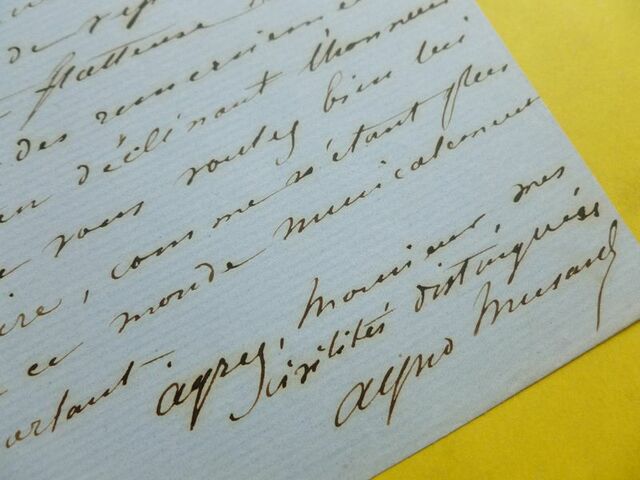 de rép
flatteuse
des remerciemen
en déclinant l'honneur
vous voulez bien lui
ire, comme n'étant plus
ce monde musicalement
ortant.
agréez, Monsieur, mes
civilités distinguées
Alfred Musard